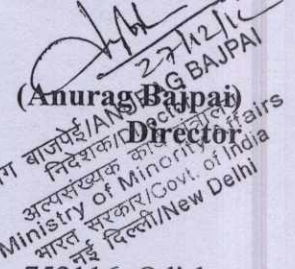 27/12/12
(Anurag Bajpai)
Director
बाजपेई/ANURAG BAJPAI
निदेशक/Director
अल्पसंख्यक कार्य मंत्रालय
Ministry of Minority Affairs
भारत सरकार/Govt. of India
नई दिल्ली/New Delhi